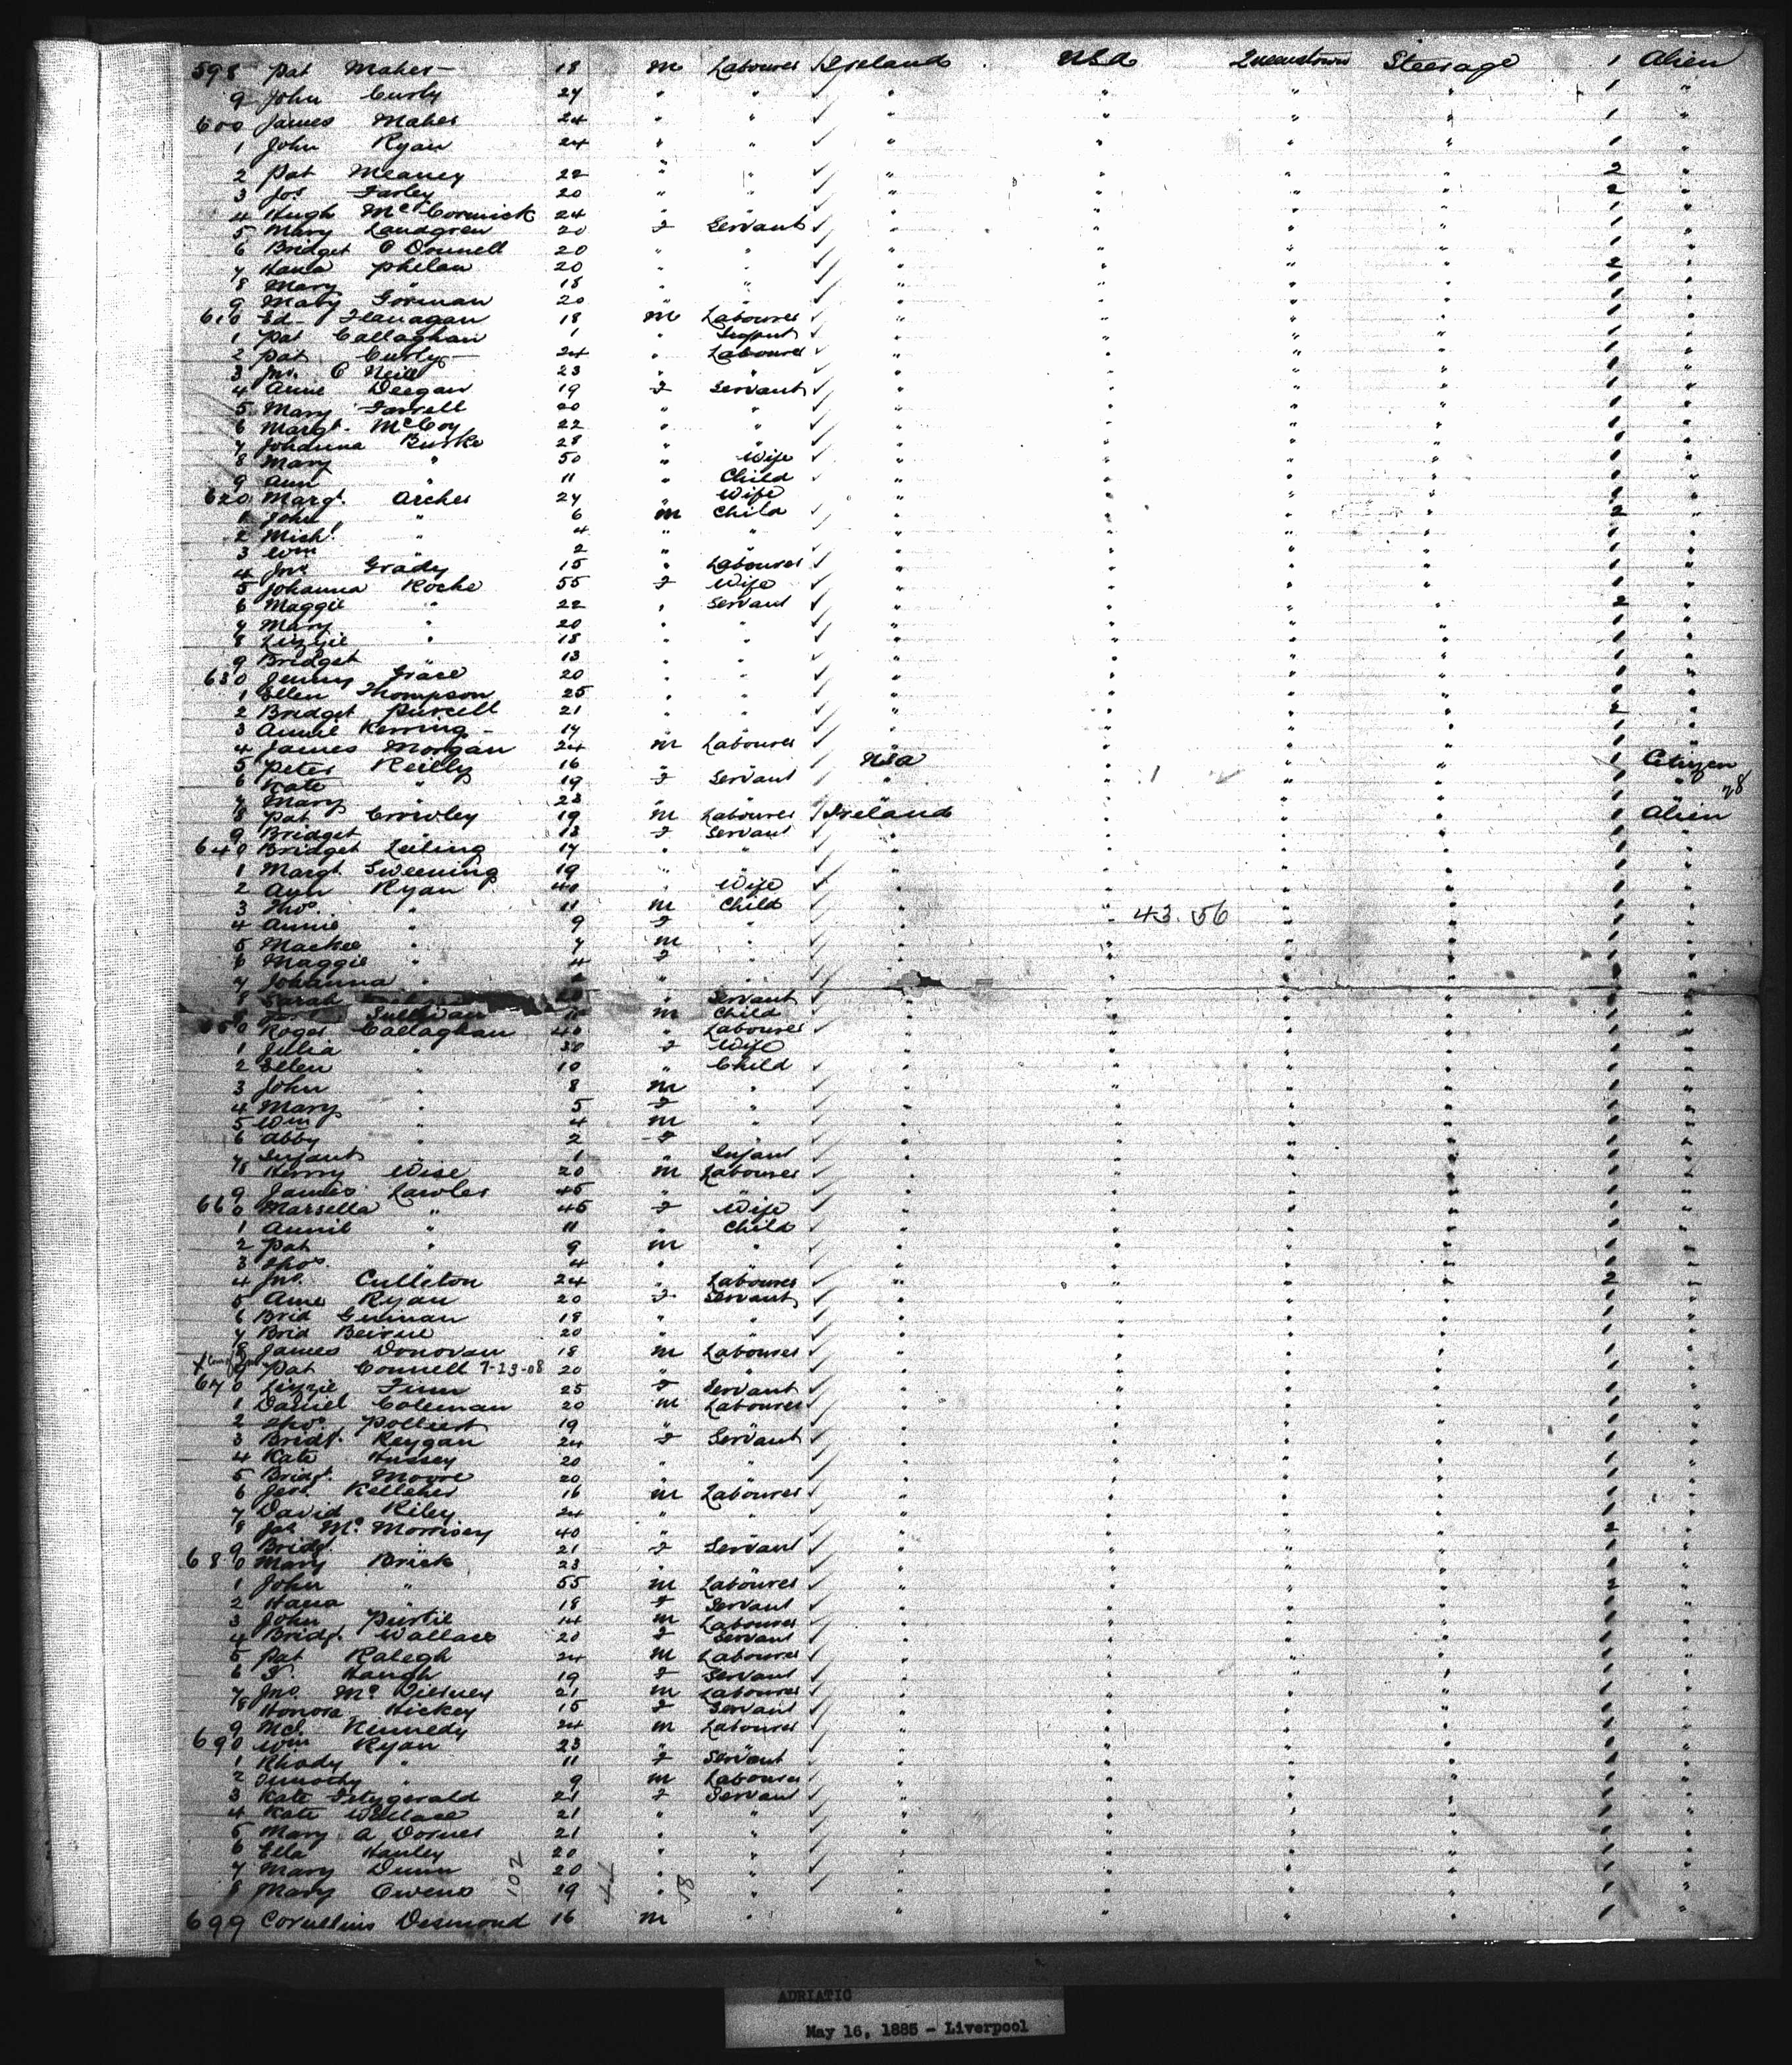 598 Pat Maher 18 m Labourer Ireland USA Queenstown Steerage 1 Alien
9 John Curly 24 " " " " " " 1 "
600 James Maher 24 " " " " " " 1 "
1 John Ryan 24 " " " " " " 1 "
2 Pat Meaney 22 " " " " " " 2 "
3 Jos Farley 20 " " " " " " 2 "
4 Hugh McCormick 24 " " " " " " 1 "
5 Mary Landgren 20 f Servant " " " " 1 "
6 Bridget O Donnell 20 " " " " " " 1 "
7 Hana Phelan 20 " " " " " " 2 "
8 Mary " 18 " " " " " " 1 "
9 Mary Gorman 20 " " " " " " 1 "
610 Ed Flanagan 18 m Labourer " " " " 1 "
1 Pat Callaghan 1 " Infant " " " " 1 "
2 Pat Curly 24 " Labourer " " " " 1 "
3 Jno. O Neill 23 " " " " " " 1 "
4 Anne Deegan 19 f Servant " " " " 1 "
5 Mary Farrell 20 " " " " " " 1 "
6 Margt. McCoy 22 " " " " " " 1 "
7 Johanna Burke 28 " " " " " " 1 "
8 Mary " 50 " Wife " " " " 1 "
9 Ann " 11 " Child " " " " 1 "
620 Margt. Archer 24 " Wife " " " "
1 John " 6 m Child " " " " 2 "
2 Michl " 4 " " " " " " 1 "
3 Wm " 2 " " " " " " 1 "
4 Jno Grady 15 " Labourer " " " " 1 "
5 Johanna Roche 55 f Wife " " " " 1 "
6 Maggie " 22 " Servant " " " " 2 "
7 Mary " 20 " " " " " " 1 "
8 Lizzie " 18 " " " " " " 1 "
9 Bridget " 13 " " " " " " 1 "
630 Jenny Grace 20 " " " " " " 1 "
1 Ellen Thompson 25 " " " " " " 1 "
2 Bridget Purcell 21 " " " " " " 2 "
3 Annie Kerring 17 " " " " " " 1 "
4 James Morgan 24 m Labourer " " " " 1 "
5 Peter Reilly 16 " " USA " " " 1 Citizen
6 Kate " 19 f Servant " " " " 1 "
7 Mary " 23 " " " " " " 1 " 28
8 Pat Crowley 19 m Labourer Ireland " " " 1 Alien
9 Bridget " 13 f Servant " " " " 1 "
640 Bridget 17 " " " " " " 1 "
1 Margt. Sweening 19 " " " " " " 1 "
2 Ann Ryan 40 " Wife " " " " 1 "
3 Thos. " 11 m Child " " " " 1 "
43.56
4 Annie " 9 f " " " " " 1 "
5 Mackee " 7 m " " " " " 1 "
6 Maggie " 4 f " " " " " 1 "
7 Johanna " " " " " " " 1 "
8 Sarah " Servant " " " " 1 "
Sullivan m Child " " " " 1 "
0 Roger Callaghan 40 " Labourer " " " " 1 "
1 Julia " 30 f Wife " " " " 1 "
2 Ellen " 10 " Child " " " " 1 "
3 John " 8 m " " " " " 1 "
4 Mary " 5 f " " " " " 1 "
5 Wm " 4 m " " " " " 1 "
6 Abby " 2 f " " " " " 1 "
7 Infant " 1 " Infant " " " " 1 "
8 Harry Wise 20 m Labourer " " " " 1 "
9 James Lawler 45 " " " " " " 1 "
660 Marsella " 45 f Wife " " " " 1 "
1 Annie " 11 " Child " " " " 1 "
2 Pat " 9 m " " " " " 1 "
3 Thos. " 4 " " " " " " 1 "
4 Jno. Culleton 24 " Labourer " " " " 2 "
5 Ame Ryan 20 f Servant " " " " 1 "
6 Brid 18 " " " " " " 1 "
7 Brid Beirne 20 " " " " " " 1 "
8 James Donovan 18 m Labourer " " " " 1 "
Pat Connell 7-23-08 20 " " " " " " 1 "
670 Lizzie Finn 25 f Servant " " " " 1 "
1 Daniel Coleman 20 m Labourer " " " " 1 "
2 Thos. 19 " " " " " " 1 "
3 Bridt. Keygan 24 f Servant " " " " 1 "
4 Kate Hussey 20 " " " " " " 1 "
5 Bridt. Moore 20 " " " " " " 1 "
6 Jere. Kelleher 16 m Labourer " " " " 1 "
7 David Riley 24 " " " " " " 1 "
8 Jas Mc Morrisey 40 " " " " " " 2 "
9 Bridt. " 21 f Servant " " " " 1 "
680 Mary Brick 23 " " " " " " 1 "
1 John " 55 m Labourer " " " " 2 "
2 Hana " 18 f Servant " " " " 1 "
3 John Purtie 14 m Labourer " " " " 1 "
4 Bridt. Wallace 20 f Servant " " " " 1 "
5 Pat Ralegh 24 m Labourer " " " " 1 "
6 Haugh 19 f Servant " " " " 1 "
7 Jno. Mc 21 m Labourer " " " " 1 "
8 Honora Hickey 15 f Servant " " " " 1 "
9 Mcl Kennedy 24 m Labourer " " " " 1 "
690 Wm Ryan 23 " " " " " " 1 "
1 Rhody " 11 f Servant " " " " 1 "
2 Timothy " 9 m Labourer " " " " 1 "
3 Kate Fitzgerald 21 f Servant " " " " 1 "
4 Kate Wallace 21 " " " " " " 1 "
5 Mary A Dorner 21 " " " " " " 1 "
6 Ella Hanley 20 " " " " " " 1 "
7 Mary Dunn 20 " " " " " " 1 "
8 Mary Owens 19 " " " " " " 1 "
102 44 58
699 Cornelius Desmond 16 m " " " " " 1 "
ADRIATIC
May 16, 1885 - Liverpool